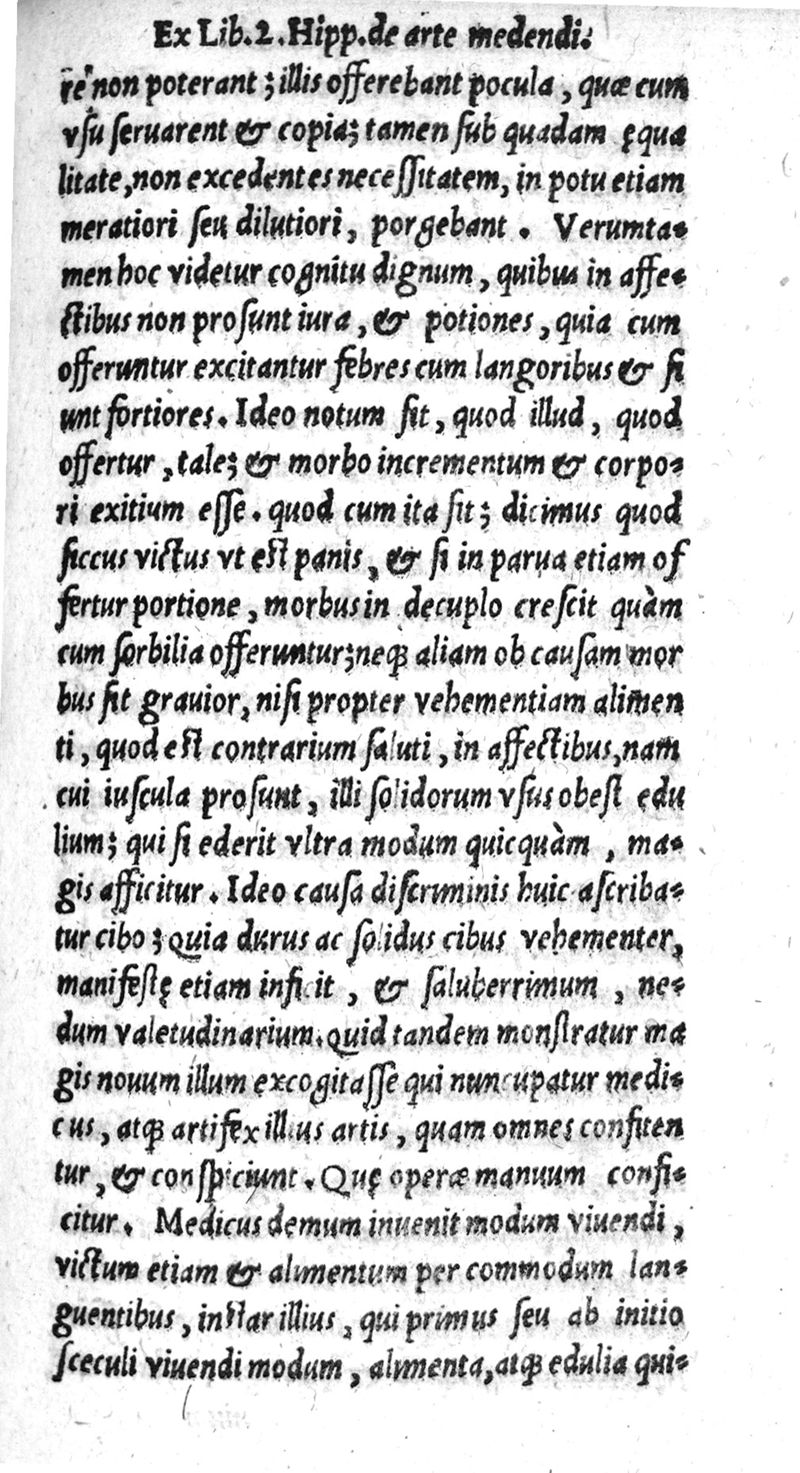 Ex Lib. 2. Hipp. de arte medendi.
re non poterant; illis offerebant pocula, quæ cum
vsu seruarent & copia; tamen sub quadam ęqua
litate, non excedentes necessitatem, in potu etiam
meratiori seu dilutiori, porgebant. Verumta-
men hoc videtur cognitu dignum, quibus in affe-
ctibus non prosunt iura, & potiones, quia cum
offeruntur excitantur febres cum langoribus & fi
unt fortiores. Ideo notum sit, quod illud, quod
offertur, tale; & morbo incrementum & corpo-
ri exitium esse. quod cum ita sit; dicimus quod
siccus victus vt est panis, & si in parua etiam of
fertur portione, morbus in decuplo crescit quàm
cum sorbilia offeruntur; neq; aliam ob causam mor
bus fit grauior, nisi propter vehementiam alimen
ti, quod est contrarium saluti, in affectibus, nam
cui iuscula prosunt, illi solidorum vsus obest edu
lium; qui si ederit vltra modum quicquàm, ma-
gis afficitur. Ideo causa discriminis huic ascriba-
tur cibo; quia durus ac solidus cibus vehementer,
manifestę etiam inficit, & saluberrimum, ne-
dum valetudinarium. quid tandem monstratur ma
gis nouum illum excogitasse qui nuncupatur medi-
cus, atq; artifex illius artis, quam omnes confiten
tur, & conspiciunt. Quę operæ manuum confi-
citur. Medicus demum inuenit modum viuendi,
victum etiam & alimentum per commodum lan-
guentibus, instar illius, qui primus seu ab initio
sceculi viuendi modum, alimenta, atq; edulia qui-